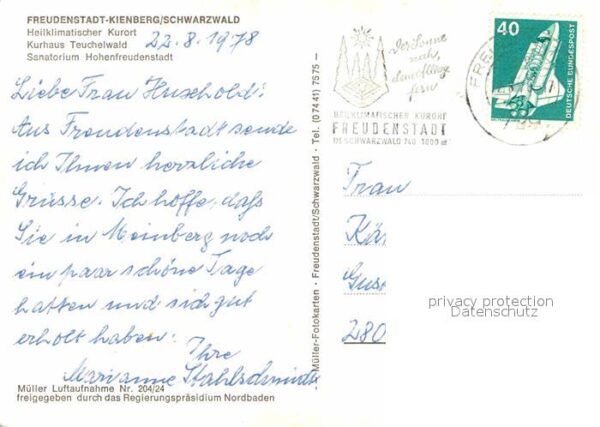 FREUDENSTADT-KIENBERG/SCHWARZWALD
Heilklimatischer Kurort
Kurhaus Teuchelwald
Sanatorium Hohenfreudenstadt
22.8.1978
Liebe Frau
Aus Freudenstadt sende
ich Ihnen herzliche
Grüsse. Ich hoffe, daß
Sie in Meinberg noch
ein paar schöne Tage
hatten und sich gut
erholt haben.
Ihre
Marianne Stahlschmidt
Müller Luftaufnahme Nr. 204/24
freigegeben durch das Regierungspräsidium Nordbaden
Müller-Fotokarten · Freudenstadt/Schwarzwald · Tel. (07441) 7575
Der Sonne
nah,
dem Alltag
fern
HEILKLIMATISCHER KURORT
FREUDENSTADT
IM SCHWARZWALD 740-1000 m
40
DEUTSCHE BUNDESPOST
Frau
Kä
Gus
280
privacy protection
Datenschutz